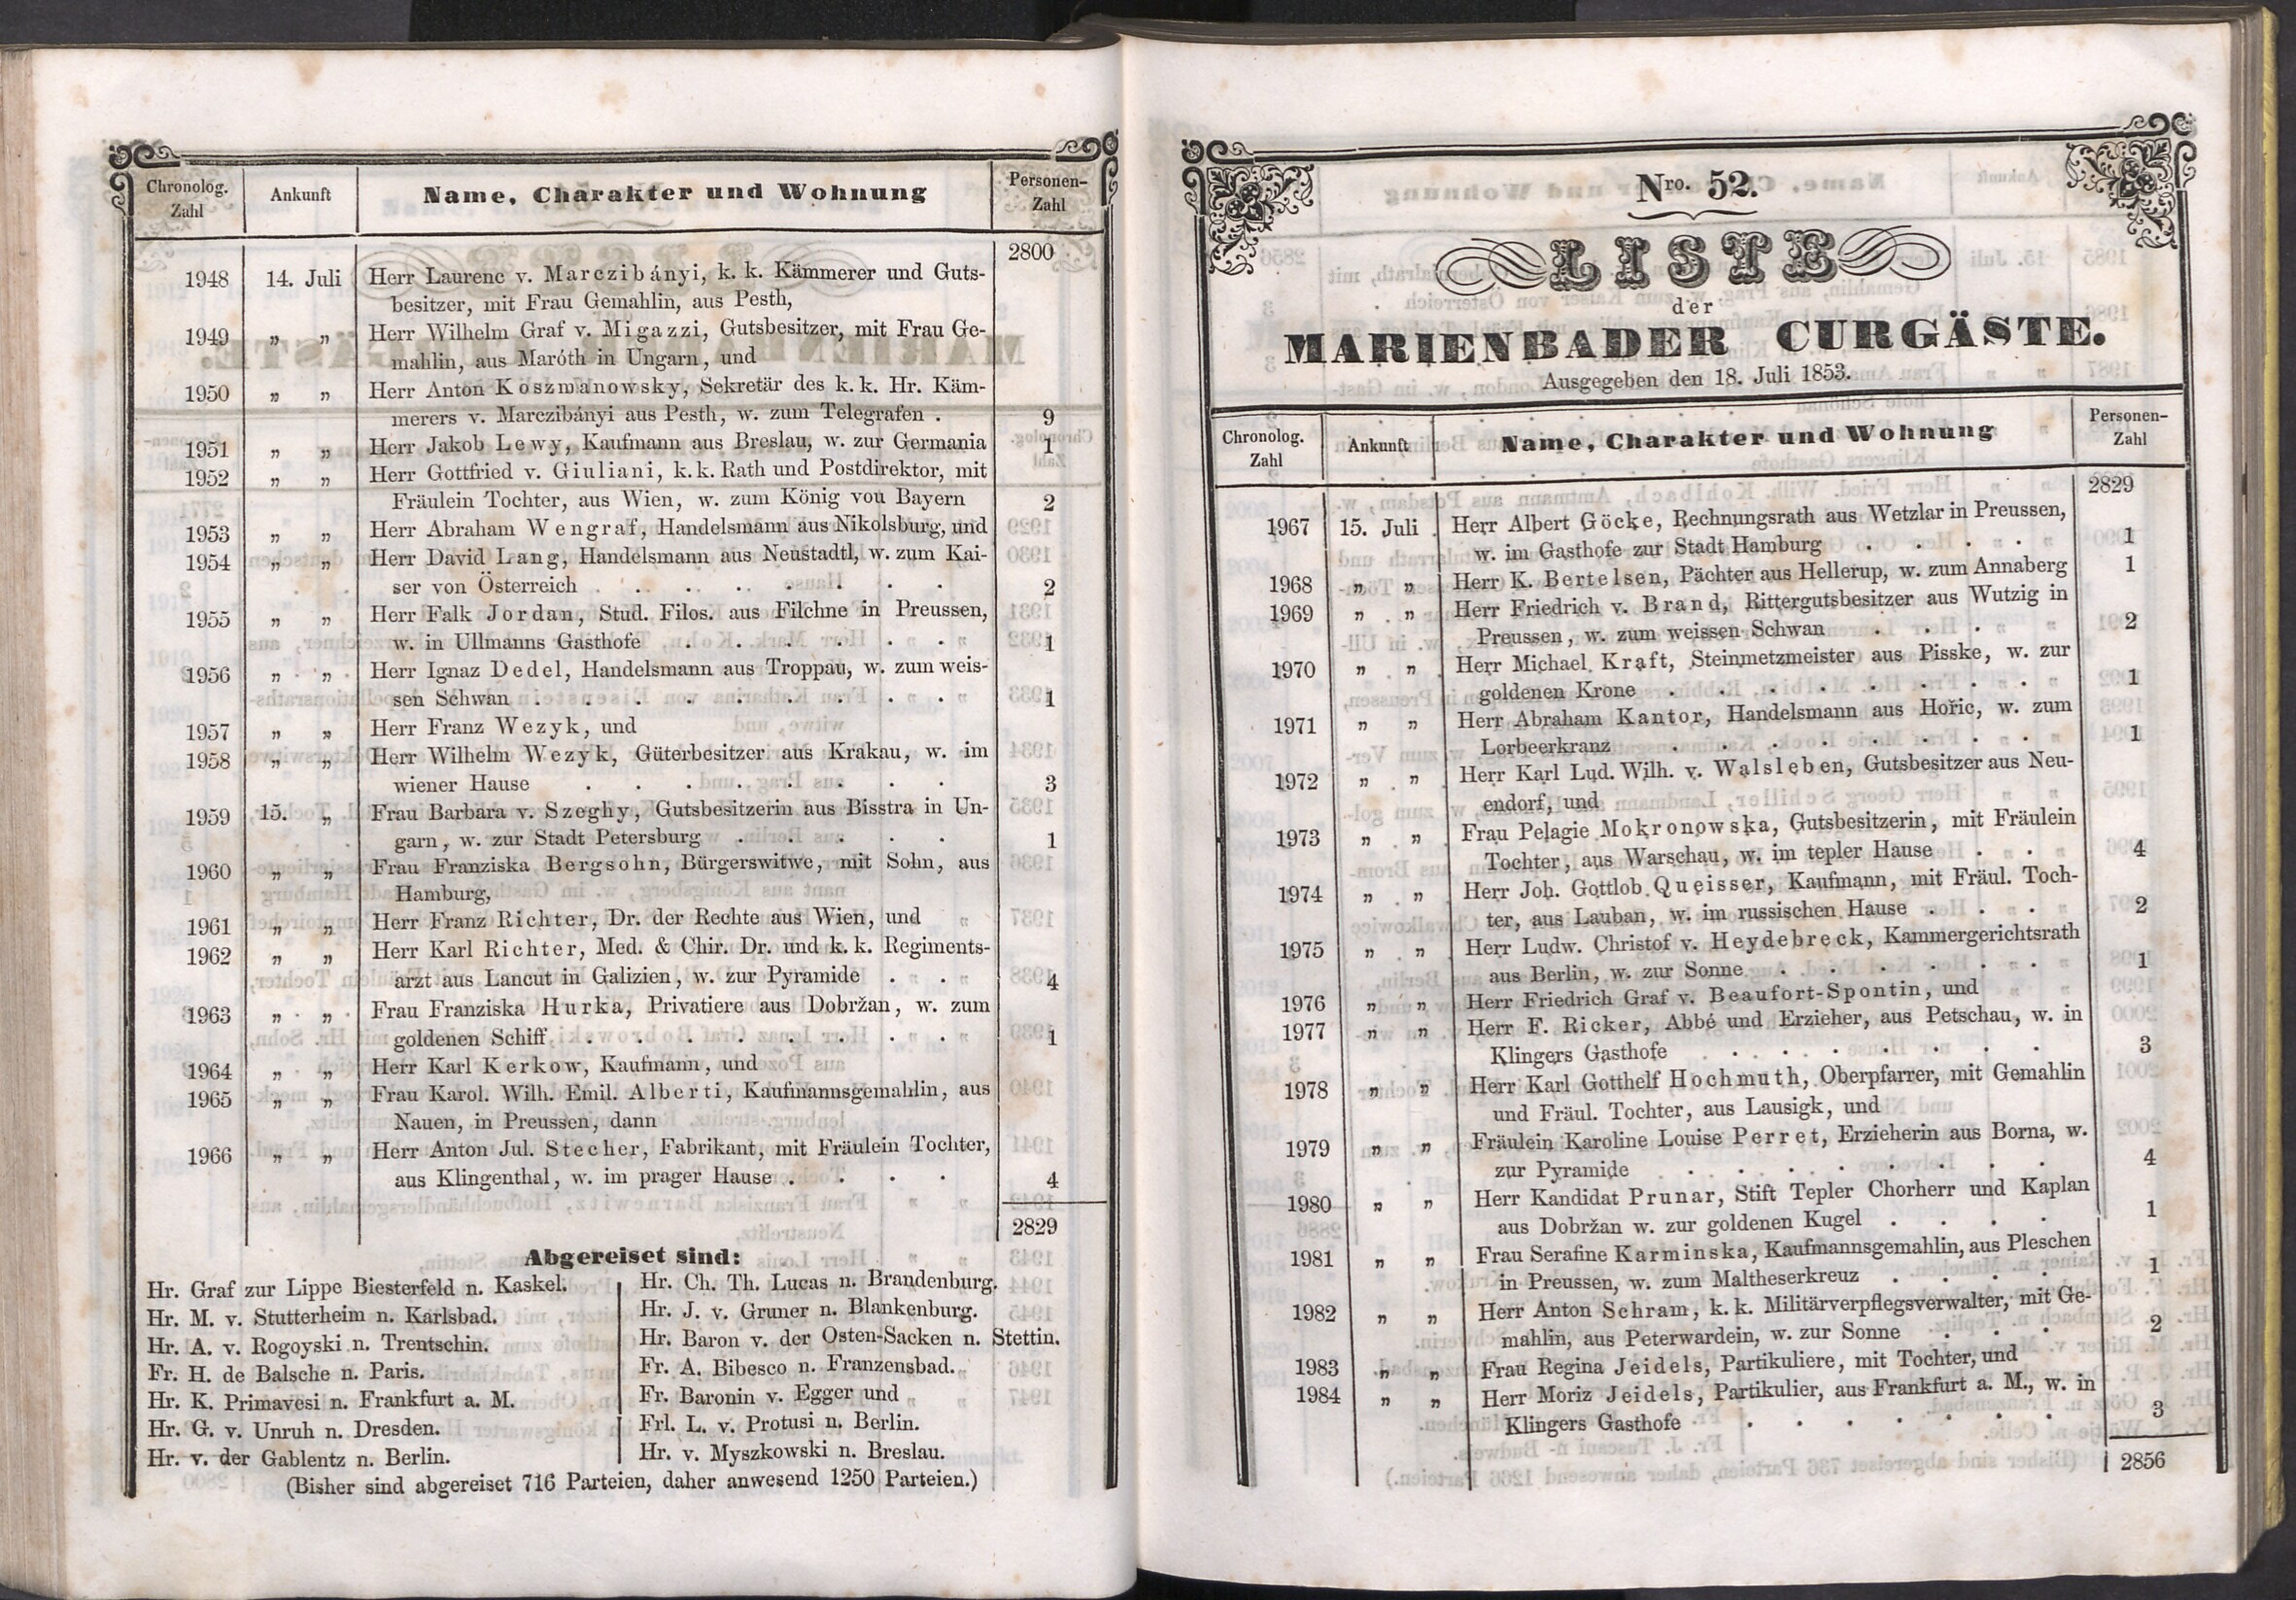 Chronolog. Zahl Ankunft Name, Charakter und Wohnung Personen-Zahl
2800
1948 14. Juli Herr Laurenc v. Marczibányi, k. k. Kämmerer und Guts-
besitzer, mit Frau Gemahlin, aus Pesth,
1949 „ „ Herr Wilhelm Graf v. Migazzi, Gutsbesitzer, mit Frau Ge-
mahlin, aus Maróth in Ungarn, und
1950 „ „ Herr Anton Koszmanowsky, Sekretär des k. k. Hr. Käm-
merers v. Marczibányi aus Pesth, w. zum Telegrafen . 9
1951 „ „ Herr Jakob Lewy, Kaufmann aus Breslau, w. zur Germania 1
1952 „ „ Herr Gottfried v. Giuliani, k. k. Rath und Postdirektor, mit
Fräulein Tochter, aus Wien, w. zum König von Bayern 2
1953 „ „ Herr Abraham Wengraf, Handelsmann aus Nikolsburg, und
1954 „ „ Herr David Lang, Handelsmann aus Neustadtl, w. zum Kai-
ser von Österreich . . . . . . . 2
1955 „ „ Herr Falk Jordan, Stud. Filos. aus Filchne in Preussen,
w. in Ullmanns Gasthofe . . . . . . 1
1956 „ „ Herr Ignaz Dedel, Handelsmann aus Troppau, w. zum weis-
sen Schwan . . . . . . . . . 1
1957 „ „ Herr Franz Wezyk, und
1958 „ „ Herr Wilhelm Wezyk, Güterbesitzer aus Krakau, w. im
wiener Hause . . . . . . . . 3
1959 15. „ Frau Barbara v. Szeghy, Gutsbesitzerin aus Bisstra in Un-
garn, w. zur Stadt Petersburg . . . . . 1
1960 „ „ Frau Franziska Bergsohn, Bürgerswitwe, mit Sohn, aus
Hamburg,
1961 „ „ Herr Franz Richter, Dr. der Rechte aus Wien, und
1962 „ „ Herr Karl Richter, Med. & Chir. Dr. und k. k. Regiments-
arzt aus Lancut in Galizien, w. zur Pyramide . . 4
1963 „ „ Frau Franziska Hurka, Privatiere aus Dobržan, w. zum
goldenen Schiff . . . . . . . . 1
1964 „ „ Herr Karl Kerkow, Kaufmann, und
1965 „ „ Frau Karol. Wilh. Emil. Alberti, Kaufmannsgemahlin, aus
Nauen, in Preussen, dann
1966 „ „ Herr Anton Jul. Stecher, Fabrikant, mit Fräulein Tochter,
aus Klingenthal, w. im prager Hause . . . . 4
2829
Abgereiset sind:
Hr. Graf zur Lippe Biesterfeld n. Kaskel.
Hr. M. v. Stutterheim n. Karlsbad.
Hr. A. v. Rogoyski n. Trentschin.
Fr. H. de Balsche n. Paris.
Hr. K. Primavesi n. Frankfurt a. M.
Hr. G. v. Unruh n. Dresden.
Hr. v. der Gablentz n. Berlin.
Hr. Ch. Th. Lucas n. Brandenburg.
Hr. J. v. Gruner n. Blankenburg.
Hr. Baron v. der Osten-Sacken n. Stettin.
Fr. A. Bibesco n. Franzensbad.
Fr. Baronin v. Egger und
Frl. L. v. Protusi n. Berlin.
Hr. v. Myszkowski n. Breslau.
(Bisher sind abgereiset 716 Parteien, daher anwesend 1250 Parteien.)
Nro. 52.
LISTE
der
MARIENBADER CURGÄSTE.
Ausgegeben den 18. Juli 1853.
Chronolog. Zahl Ankunft Name, Charakter und Wohnung Personen-Zahl
2829
1967 15. Juli Herr Albert Göcke, Rechnungsrath aus Wetzlar in Preussen,
w. im Gasthofe zur Stadt Hamburg . . . . 1
1968 „ „ Herr K. Bertelsen, Pächter aus Hellerup, w. zum Annaberg 1
1969 „ „ Herr Friedrich v. Brand, Rittergutsbesitzer aus Wutzig in
Preussen, w. zum weissen Schwan . . . . 2
1970 „ „ Herr Michael Kraft, Steinmetzmeister aus Pisske, w. zur
goldenen Krone . . . . . . . . 1
1971 „ „ Herr Abraham Kantor, Handelsmann aus Hořic, w. zum
Lorbeerkranz . . . . . . . . 1
1972 „ „ Herr Karl Lud. Wilh. v. Walsleben, Gutsbesitzer aus Neu-
endorf, und
1973 „ „ Frau Pelagie Mokronowska, Gutsbesitzerin, mit Fräulein
Tochter, aus Warschau, w. im tepler Hause . . . 4
1974 „ „ Herr Joh. Gottlob Queisser, Kaufmann, mit Fräul. Toch-
ter, aus Lauban, w. im russischen Hause . . . 2
1975 „ „ Herr Ludw. Christof v. Heydebreck, Kammergerichtsrath
aus Berlin, w. zur Sonne . . . . . . 1
1976 „ „ Herr Friedrich Graf v. Beaufort-Spontin, und
1977 „ „ Herr F. Ricker, Abbé und Erzieher, aus Petschau, w. in
Klingers Gasthofe . . . . . . . 3
1978 „ „ Herr Karl Gotthelf Hochmuth, Oberpfarrer, mit Gemahlin
und Fräul. Tochter, aus Lausigk, und
1979 „ „ Fräulein Karoline Louise Perret, Erzieherin aus Borna, w.
zur Pyramide . . . . . . . . 4
1980 „ „ Herr Kandidat Prunar, Stift Tepler Chorherr und Kaplan
aus Dobržan w. zur goldenen Kugel . . . . 1
1981 „ „ Frau Serafine Karminska, Kaufmannsgemahlin, aus Pleschen
in Preussen, w. zum Maltheserkreuz . . . . 1
1982 „ „ Herr Anton Schram, k. k. Militärverpflegsverwalter, mit Ge-
mahlin, aus Peterwardein, w. zur Sonne . . . 2
1983 „ „ Frau Regina Jeidels, Partikuliere, mit Tochter, und
1984 „ „ Herr Moriz Jeidels, Partikulier, aus Frankfurt a. M., w. in
Klingers Gasthofe . . . . . . . 3
2856